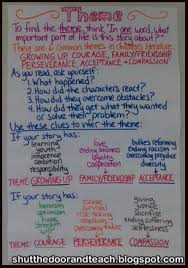 Theme
To find the theme, think, "In one word, what
important part of life is this story about?"
There are 6 common themes in children's literature
GROWING UP, COURAGE, FAMILY/FRIENDSHIP
PERSEVERANCE, ACCEPTANCE + COMPASSION
As you read, ask yourself:
1. What happened?
2. How did the characters react?
3. How did they overcome obstacles?
4. How did they get what they wanted
or solve their problem?
Use these clues to infer the theme:
If your story has:
learning
youth
innocence
responsibility
love
kindness
loyalty
cooperation
bullies reforming
ending racism
overcoming prejudice
THEME: GROWING UP
FAMILY/FRIENDSHIP
ACCEPTANCE
If your story has:
heroism
optimism
hope
strength
escape
survival
risk-taking
love
ending suffering
selflessness
THEME: COURAGE
PERSEVERANCE
COMPASSION
shutthedoorandteach.blogspot.com